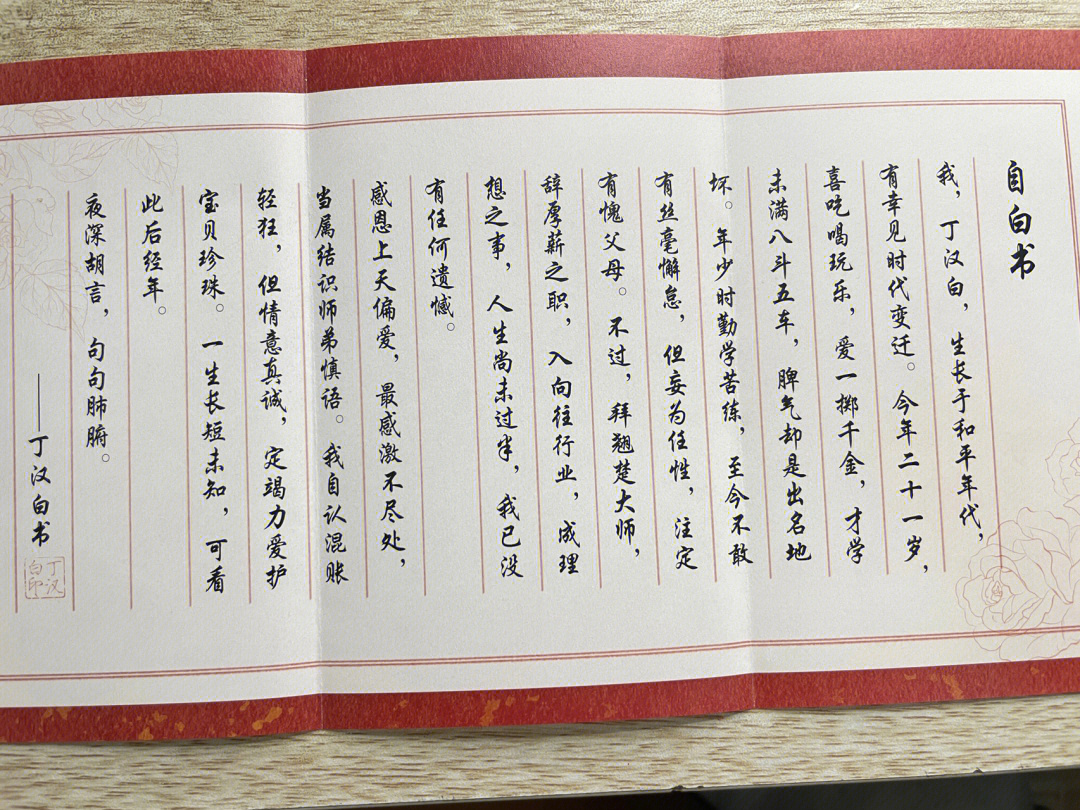 自白书
我，丁汉白，生长于和平年代，
有幸见时代变迁。今年二十一岁，
喜吃喝玩乐，爱一掷千金，才学
未满八斗五车，脾气却是出名地
坏。年少时勤学苦练，至今不敢
有丝毫懈怠，但妄为任性，注定
有愧父母。不过，拜翘楚大师，
辞厚薪之职，入向往行业，成理
想之事，人生尚未过半，我已没
有任何遗憾。
感恩上天偏爱，最感激不尽处，
当属结识师弟慎语。我自认混账
轻狂，但情意真诚，定竭力爱护
宝贝珍珠。一生长短未知，可看
此后经年。
夜深胡言，句句肺腑。
——丁汉白书
丁汉
白印